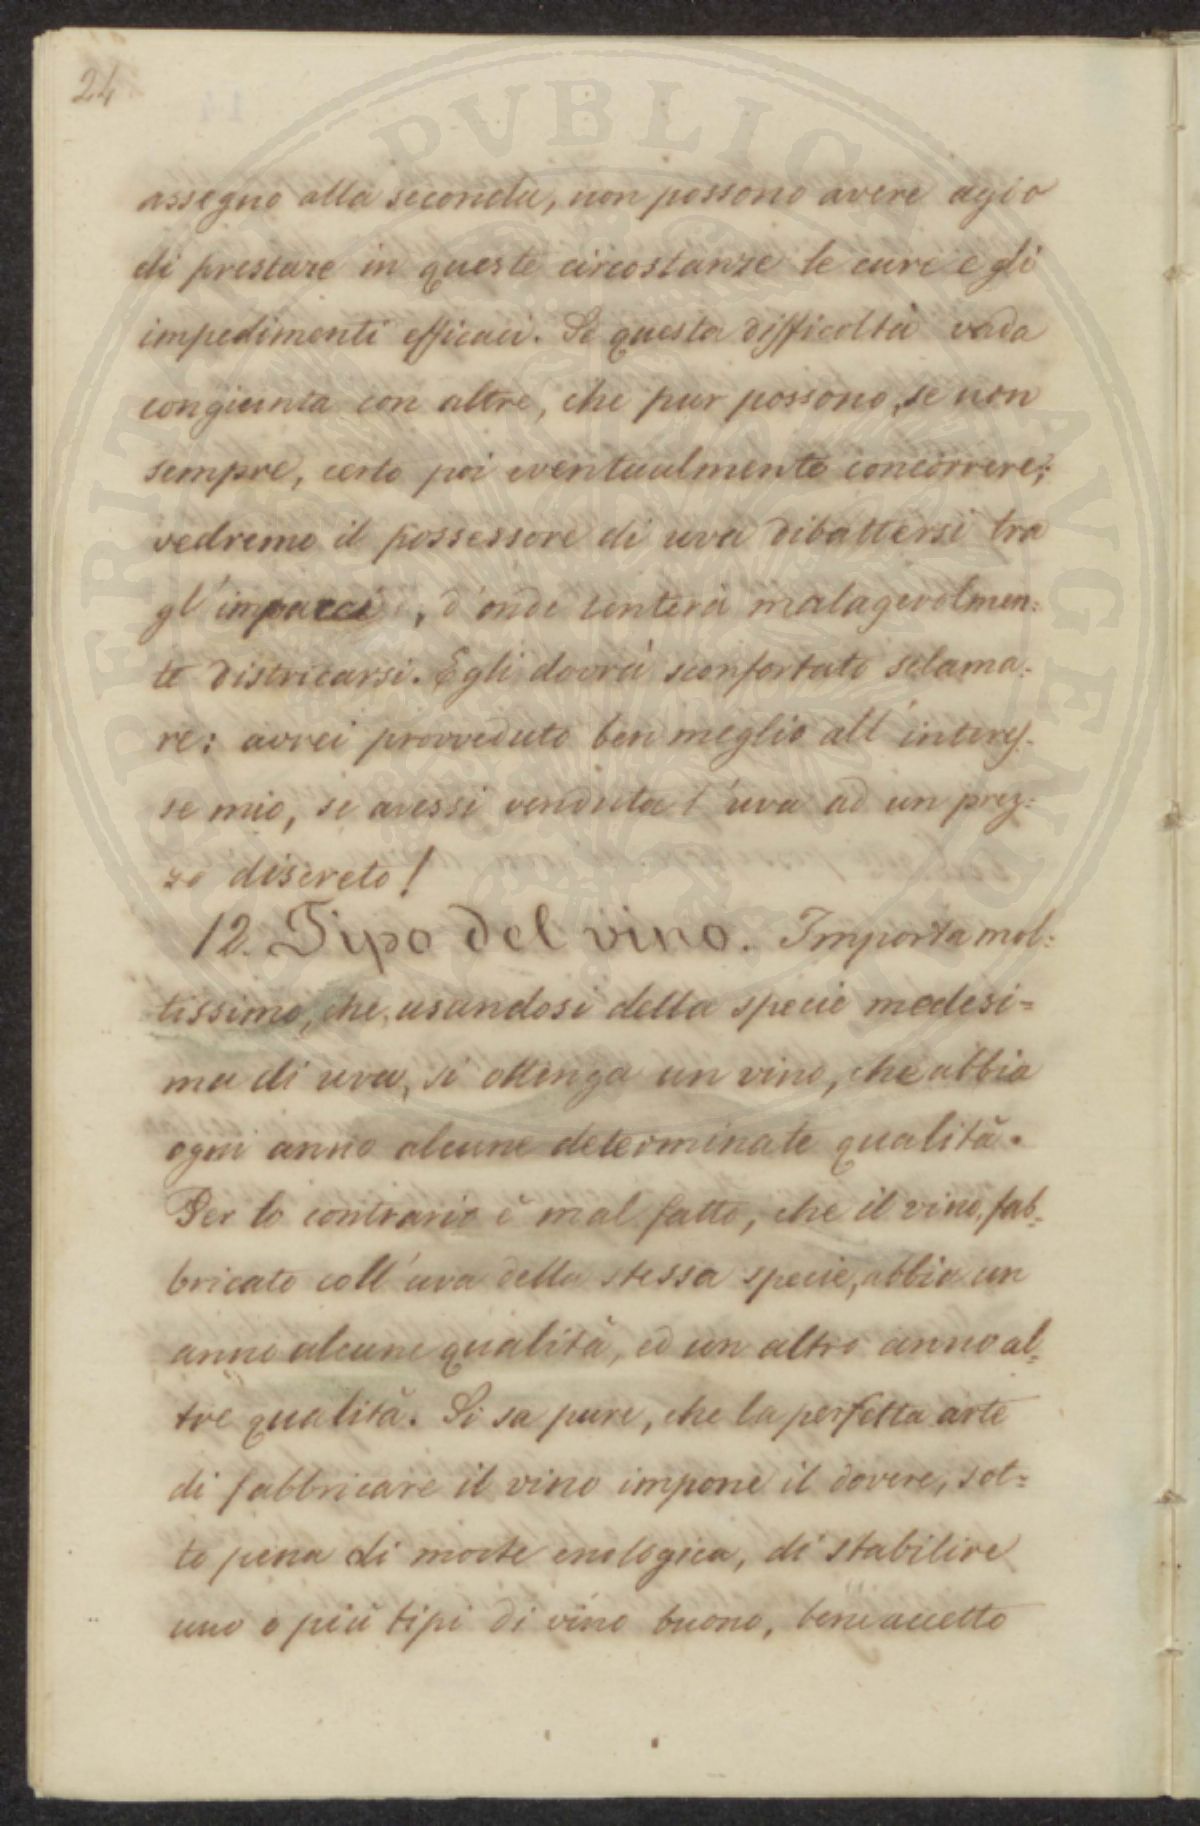 24
assegno alla seconda, non possono avere agio
di prestare in queste circostanze le cure e gli
impedimenti efficaci. Se questa difficoltà vada
congiunta con altre, che pur possono, se non
sempre, certo poi eventualmente concorrere;
vedremo il possessore di uva dibattersi tra
gl'impacci, d'onde tenterà malagevolmen=
te districarsi. Egli dovrà sconfortato sclama=
re: avrei provveduto ben meglio all'interes=
se mio, se avessi venduta l'uva ad un prez=
zo discreto!
12. Tipo del vino. Importa mol=
tissimo, che, usandosi della specie medesi=
ma di uva, si ottenga un vino, che abbia
ogni anno alcune determinate qualità.
Per lo contrario è mal fatto, che il vino, fab=
bricato coll'uva della stessa specie, abbia un
anno alcune qualità, ed un altro anno al=
tre qualità. Si sa pure, che la perfetta arte
di fabbricare il vino impone il dovere, sot=
to pena di morte enologica, di stabilire
uno o più tipi di vino buono, bene accetto
PERITATI PVBLICAE AVGENDAE